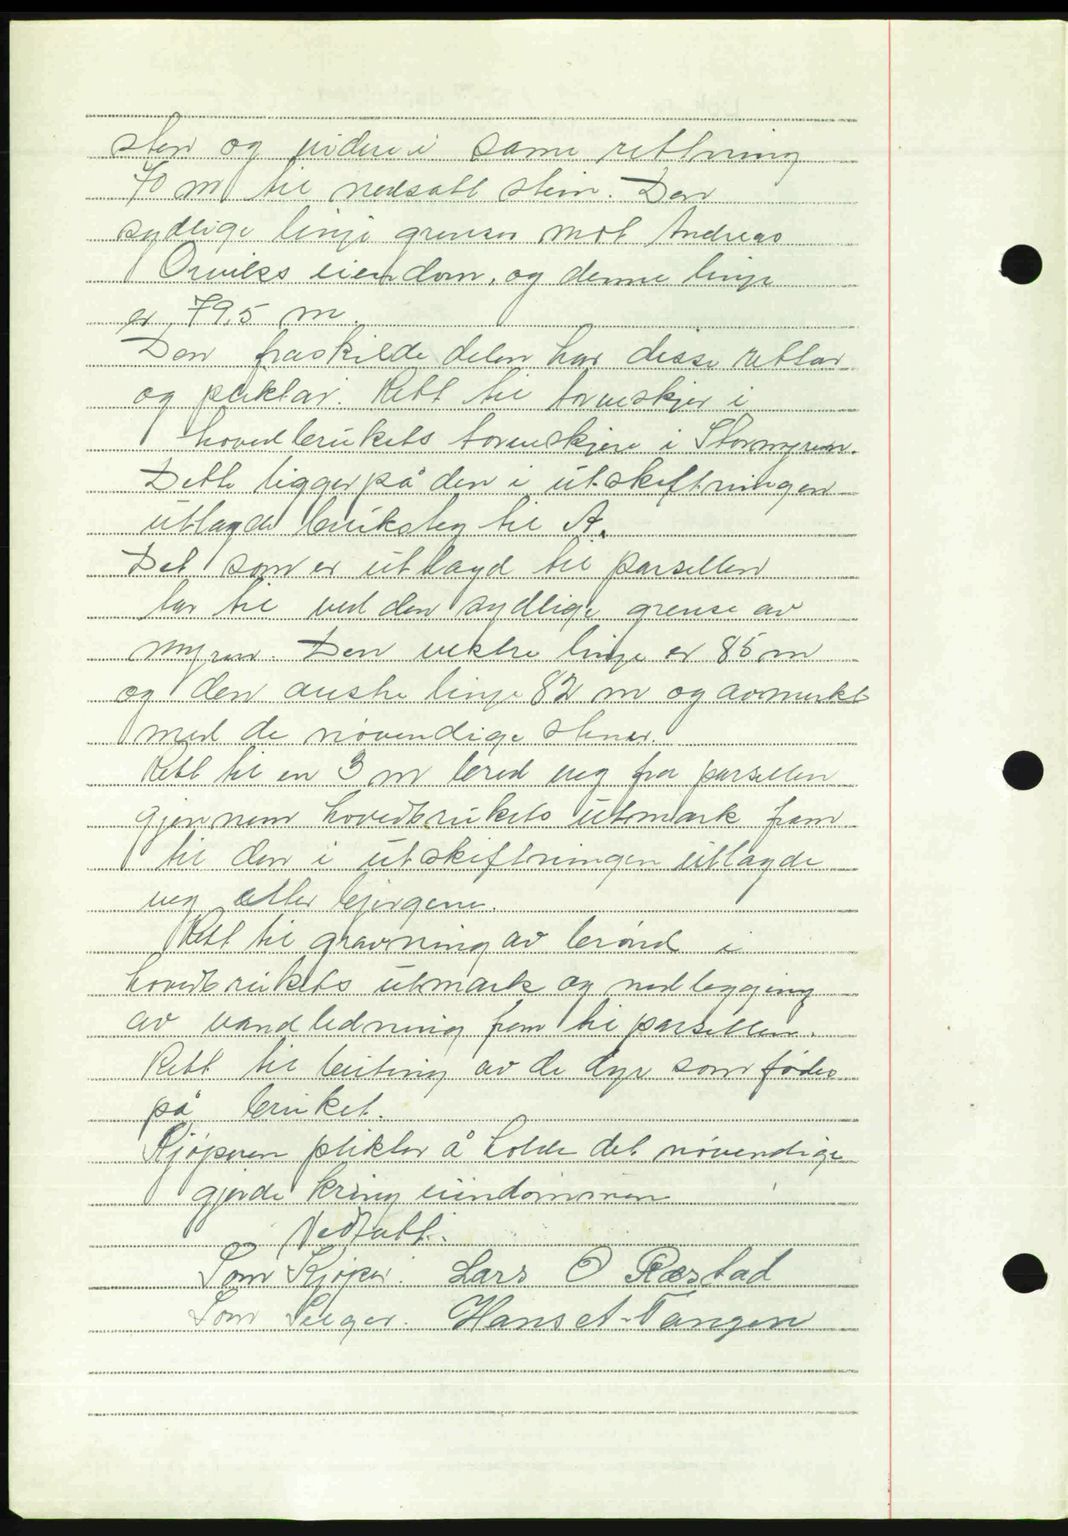 sten og videre i same rettning
70 m til nedsatt stein. Den
sydlige linje grenser mot Andreas
Orviks eiendom, og denne linje
er 79,5 m.
Den fraskilde delen har disse rettar
og pliktar. Rett til torveskjer i
hovedbrukets torveskjere i Stormyren.
Dette ligger på den i utskiftningen
utlagde bruksteg til A.
Det som er utlagd til parsellen
tar til ved den sydlige grense av
myren. Den vestre linje er 85 m
og den austre linje 82 m og avmerkt
med de növendige stener.
Rett til en 3 m bred veg fra parsellen
gjennem hovedbrukets utmark fram
til den i utskiftningen utlagde
veg etter bjergene.
Rett til gravning av brönd i
hovedbrukets utmark og nedlegging
av vandledning frem til parsellen.
Rett til beiting av de dyr som födes
på bruket.
Kjöperen plikter å holde det növendige
gjerde kring eiendommen
Vedtatt.
Som Kjöper. Lars O Ræstad
Som Selger. Hans A. Tangen